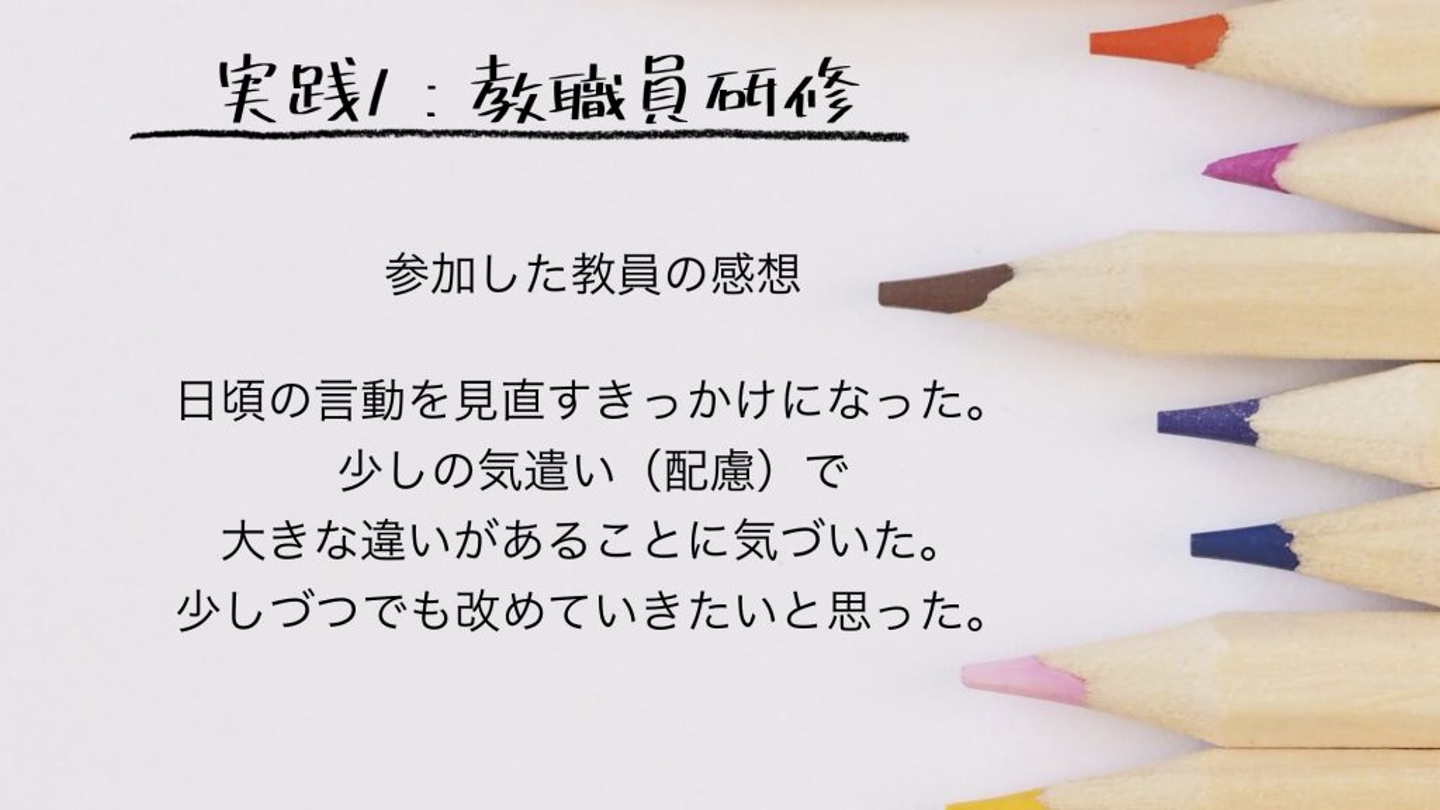 実践1：教職員研修
参加した教員の感想
日頃の言動を見直すきっかけになった。
少しの気遣い（配慮）で
大きな違いがあることに気づいた。
少しづつでも改めていきたいと思った。